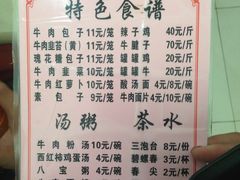 特色食谱
牛肉包子 11元/笼 辣子鸡 40元/斤
牛肉韭苔(黄) 11元/笼 牛腱子 70元/斤
瑰花糖包子 11元/笼 罐罐牛 20元/斤
牛肉韭菜 10元/笼 罐罐鸡 20元/斤
牛肉红萝卜 10元/笼 酸汤面 5元/碗
素包子 9元/笼 牛肉面片 4元/碗/10元/碗
汤粥 茶水
牛肉粉汤 10元/碗 三泡台 8元/份
西红柿鸡蛋汤 4元/碗 碧螺春 3元/杯
八宝粥 4元/碗 春尖 2元/杯